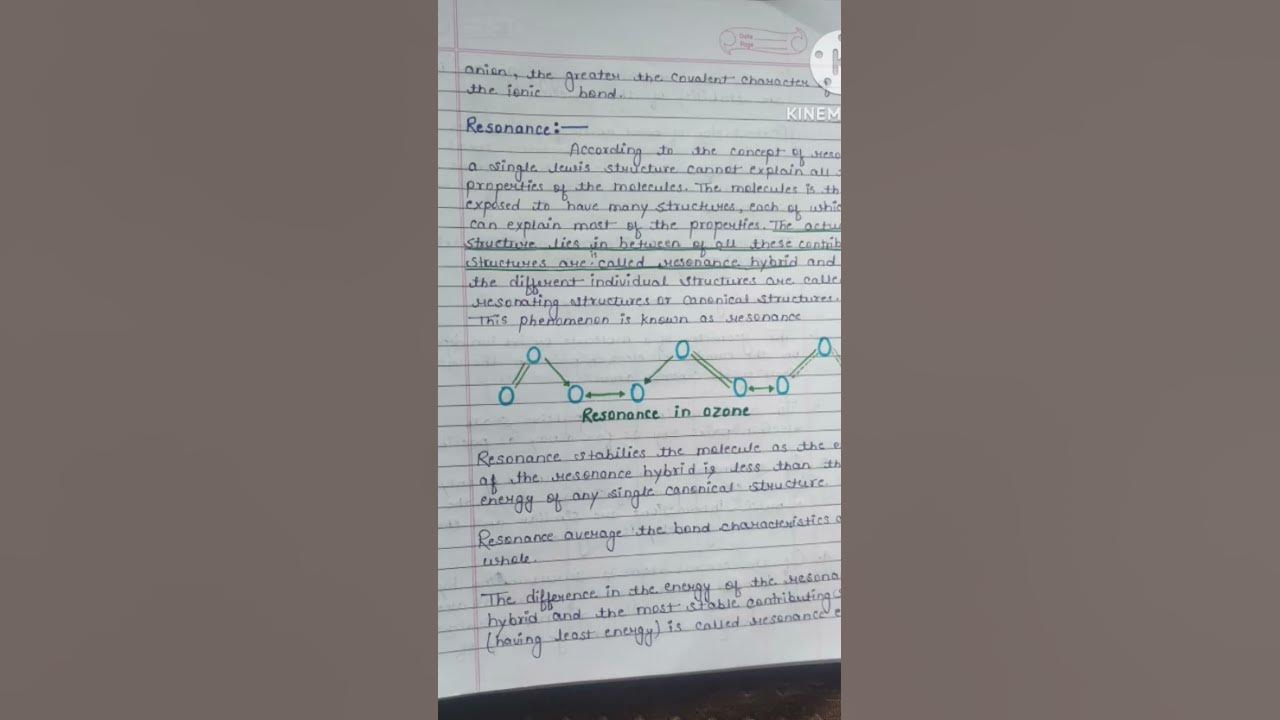 Date
Page
anion, the greater the Covalent character of
the ionic bond.
KINEM
Resonance:—
According to the concept of reso
a single lewis structure cannot explain all
properties of the molecules. The molecules is th
exposed to have many structures, each of whic
can explain most of the properties. The actu
structure lies in between of all these contrib
structures are is called resonance hybrid and
the different individual structures are calle
resonating structures or canonical structures.
This phenomenon is known as resonance
O O O O O O O O
Resonance in ozone
Resonance stabilies the molecule as the e
of the resonance hybrid is less than th
energy of any single canonical structure.
Resonance average the bond characteristics
whole.
The difference in the energy of the resona
hybrid and the most stable contributing s
(having least energy) is called resonance e